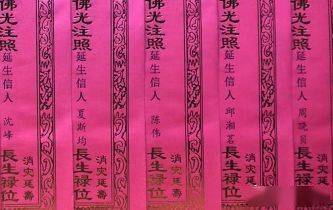 佛光注照
延生信人 沈峰
長生禄位
消灾延壽
佛光注照
延生信人 夏斯均
長生禄位
消灾延壽
佛光注照
延生信人 陈伟
長生禄位
消灾延壽
佛光注照
延生信人 邱湘茗
長生禄位
消灾延壽
佛光注照
延生信人 周晓貝
長生禄位